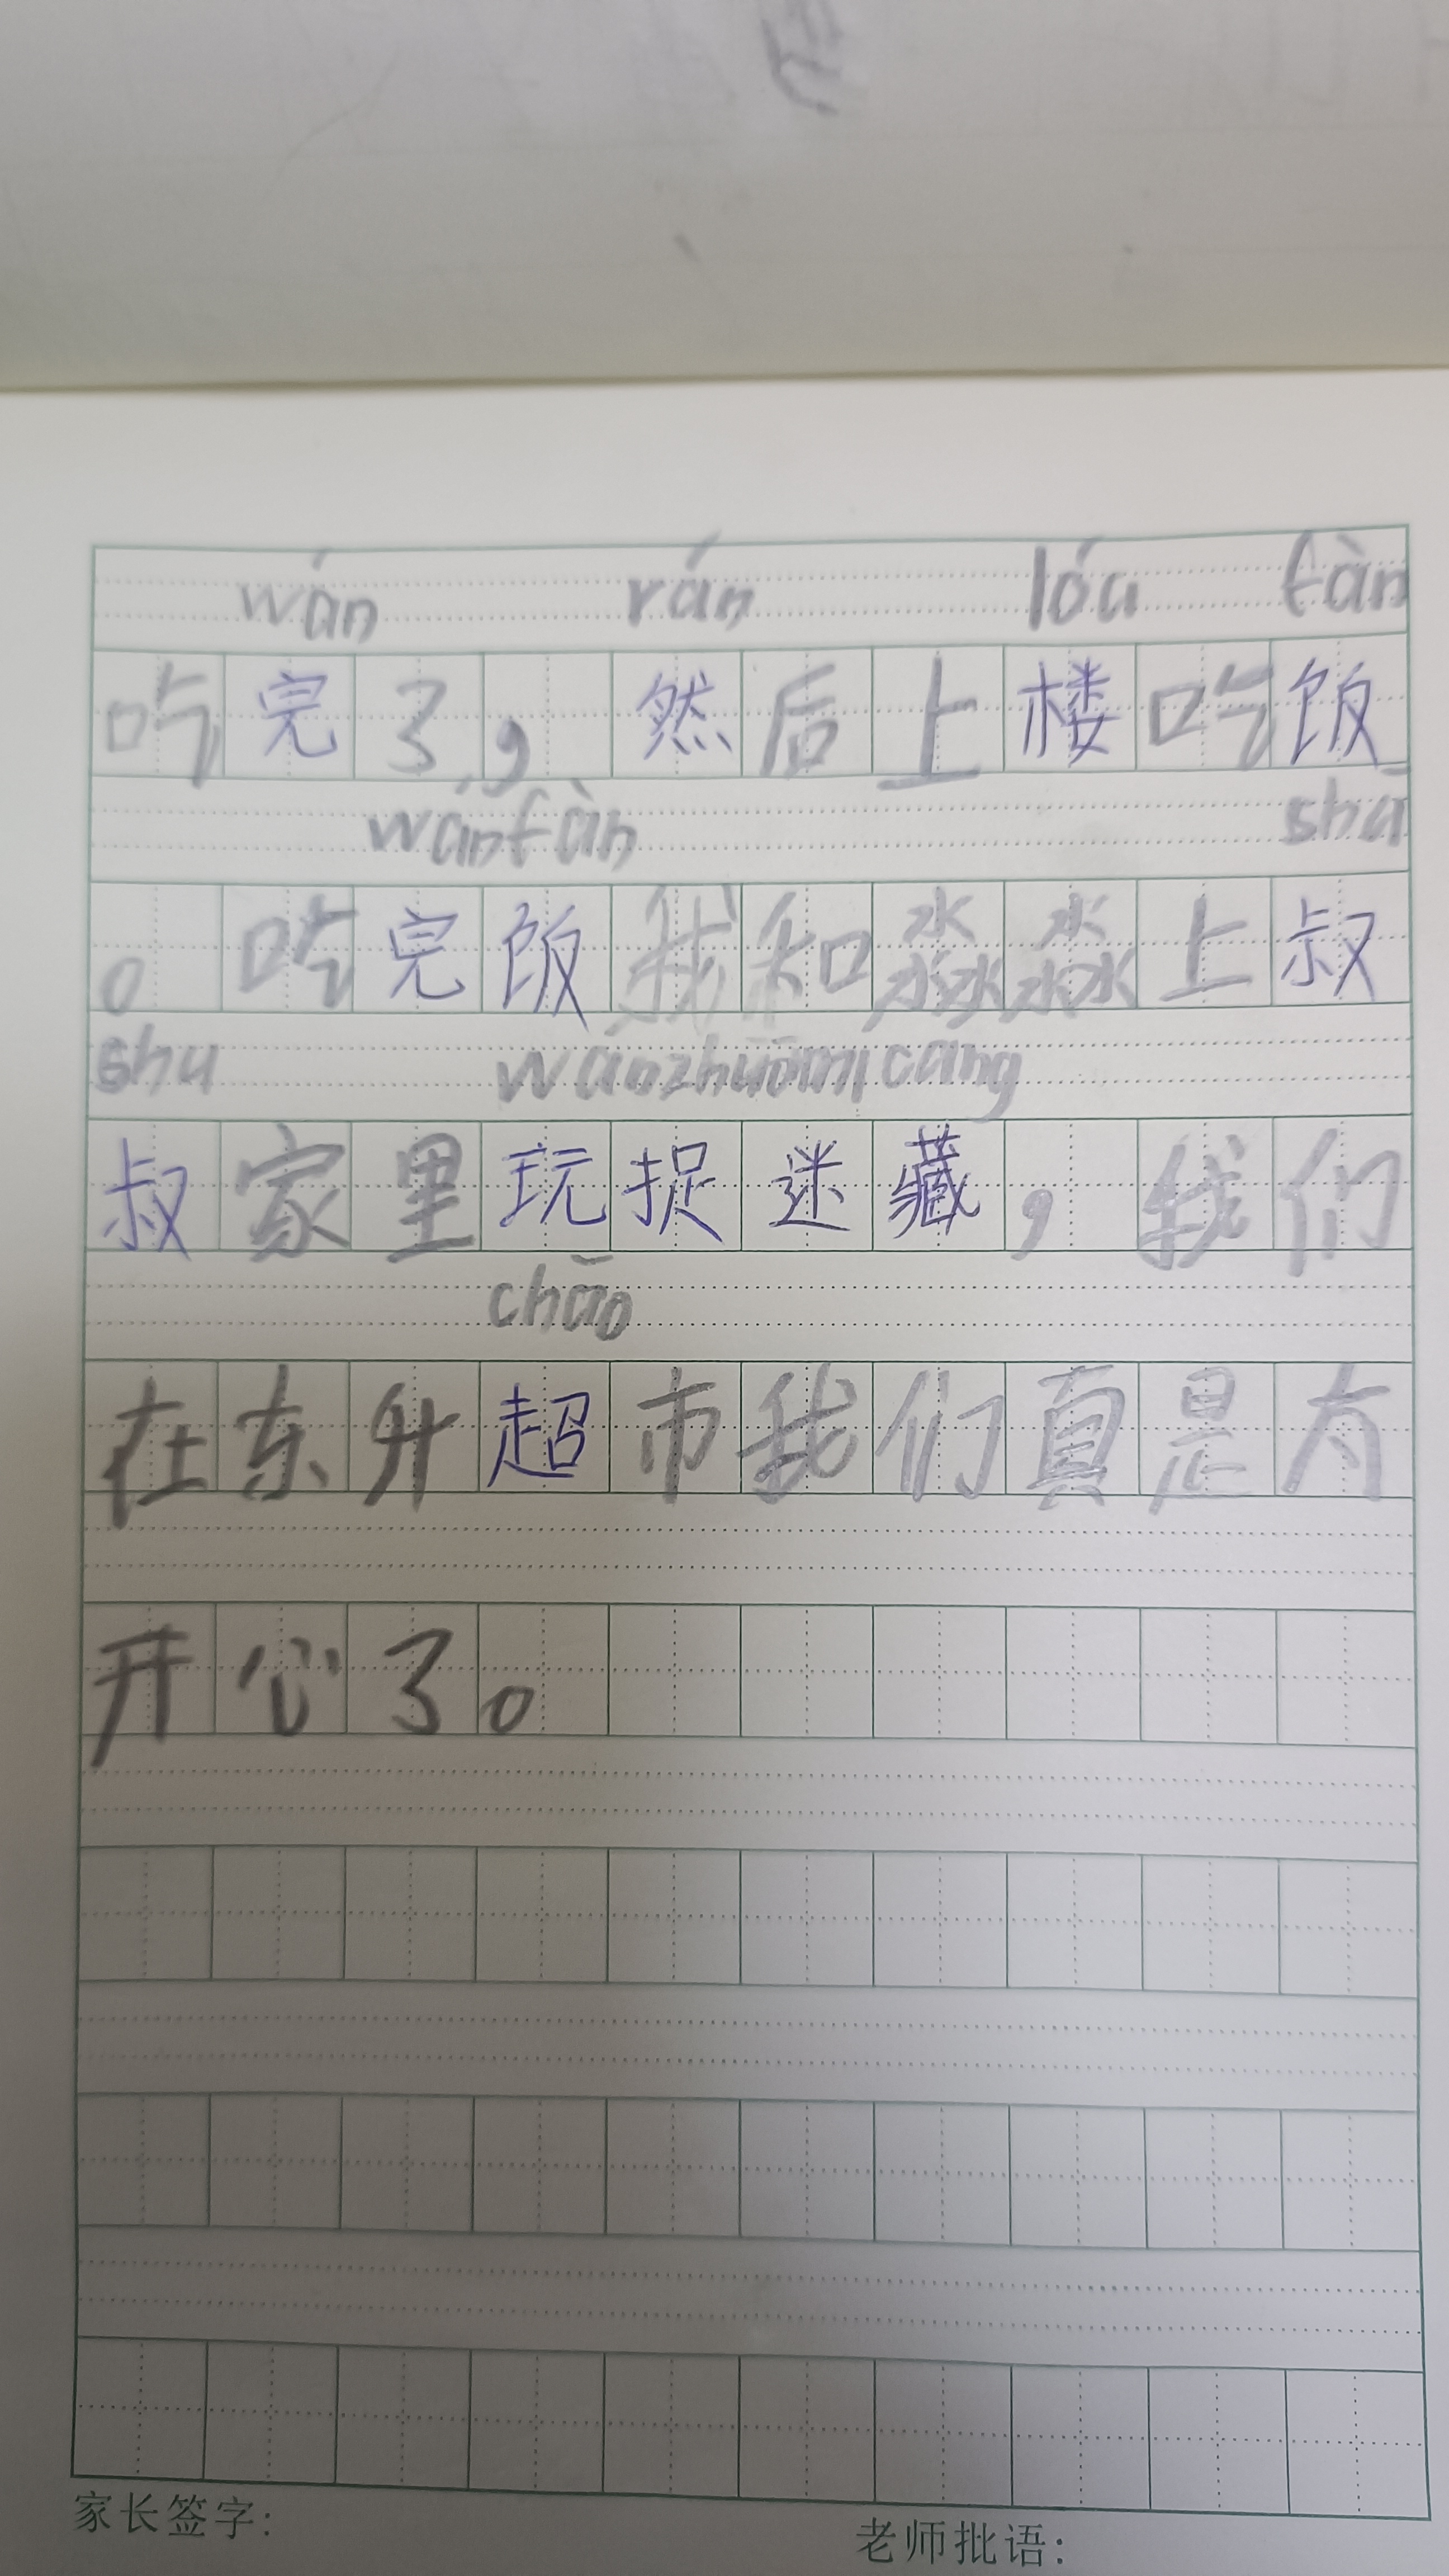 wán rán lóu fàn
吃完了，然后上楼吃饭
wánfàn shū
。吃完饭我和淼淼上叔
shu wánzhuōmícáng
叔家里玩捉迷藏，我们
chāo
在东升超市我们真是太
开心了。
家长签字:
老师批语: